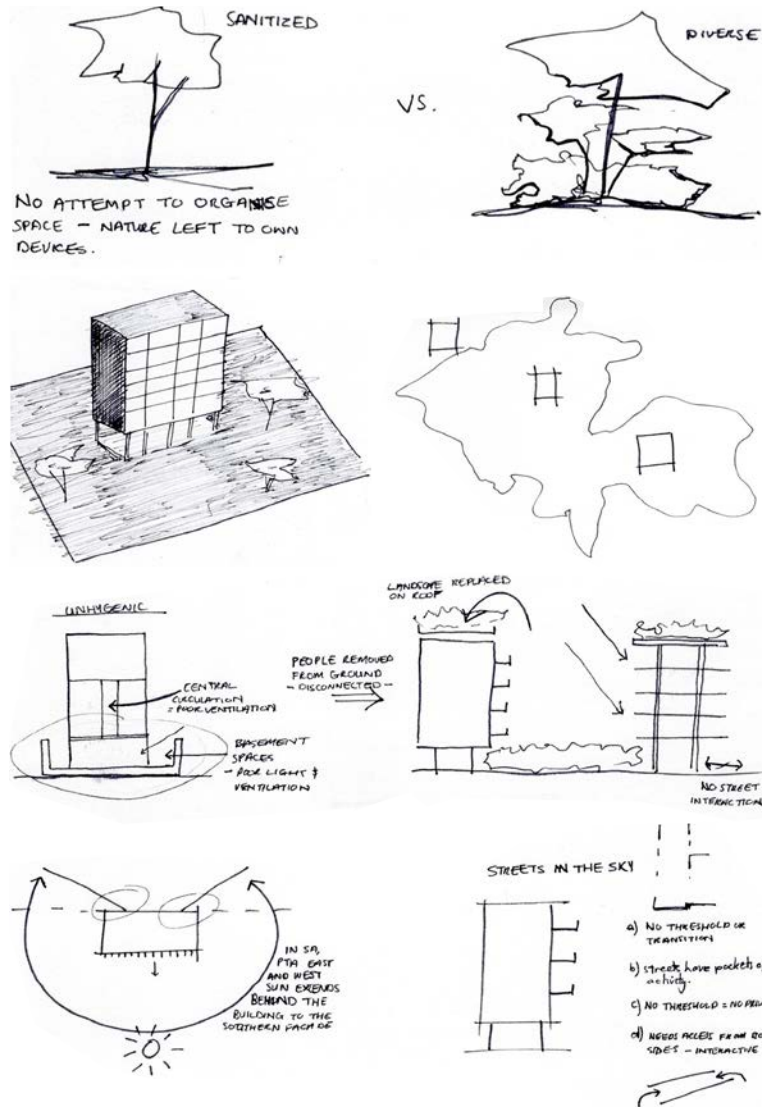 SANITIZED
VS.
DIVERSE
NO ATTEMPT TO ORGANISE
SPACE - NATURE LEFT TO OWN
DEVICES.
UNHYGENIC
CENTRAL
CIRCULATION
= POOR VENTILATION
BASEMENT
SPACES
- POOR LIGHT &
VENTILATION
PEOPLE REMOVED
FROM GROUND
- DISCONNECTED -
LANDSCAPE REPLACED
ON ROOF
NO STREET
INTERACTION
IN SA,
PTA EAST
AND WEST
SUN EXTENDS
BEHIND THE
BUILDING TO THE
SOUTHERN FACADE
STREETS IN THE SKY
a) NO THRESHOLD OR
TRANSITION
b) streets have pockets
activity.
c) NO THRESHOLD = NO
d) NEEDS ACCESS FROM
SIDES - INTERACTIVE